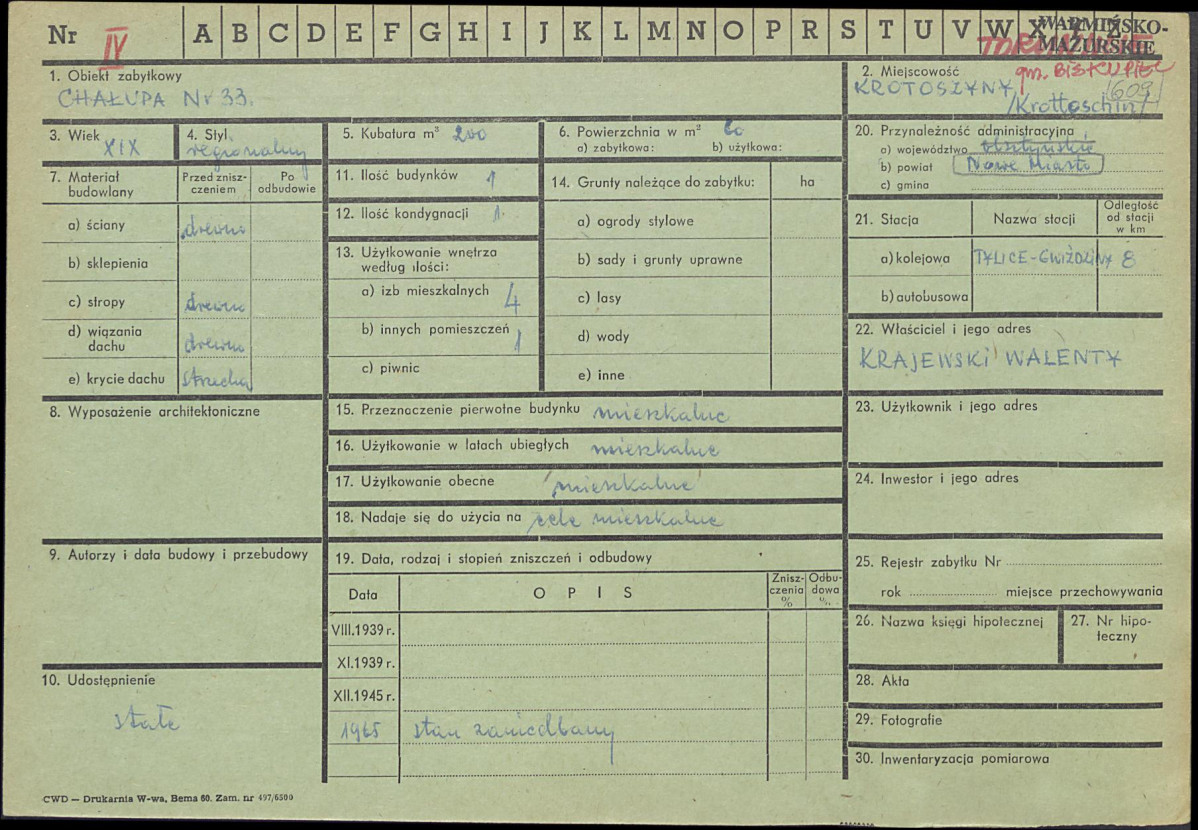 Nr IV A B C D E F G H I J K L M N O P R S T U V W X Y Z
WARMIŃSKO-
MAZURSKIE
gm. BISKUPIEC
1. Obiekt zabytkowy
CHAŁUPA Nr 33.
2. Miejscowość
KROTOSZYNY
1609
/Krottoschin/
3. Wiek
XIX
4. Styl
regionalny
5. Kubatura m³ 200
6. Powierzchnia w m² 60
a) zabytkowa: b) użytkowa:
7. Materiał budowlany
Przed znisz-
czeniem
Po
odbudowie
a) ściany drewno
b) sklepienia
c) stropy drewno
d) wiązania
dachu drewno
e) krycie dachu strzecha
8. Wyposażenie architektoniczne
9. Autorzy i data budowy i przebudowy
10. Udostępnienie
stałe
11. Ilość budynków 1
12. Ilość kondygnacji 1.
13. Użytkowanie wnętrza
według ilości:
a) izb mieszkalnych 4
b) innych pomieszczeń 1
c) piwnic
14. Grunty należące do zabytku: ha
a) ogrody stylowe
b) sady i grunty uprawne
c) lasy
d) wody
e) inne
15. Przeznaczenie pierwotne budynku mieszkalne
16. Użytkowanie w latach ubiegłych mieszkalne
17. Użytkowanie obecne mieszkalne
18. Nadaje się do użycia na cele mieszkalne
19. Data, rodzaj i stopień zniszczeń i odbudowy
Data
OPIS
Znisz-
czenia
%
Odbu-
dowa
%
VIII.1939 r.
XI.1939 r.
XII.1945 r.
1965 stan zaniedbany
20. Przynależność administracyjna
a) województwo olsztyńskie
b) powiat Nowe Miasto
c) gmina
21. Stacja
Nazwa stacji
Odległość
od stacji
w km
a) kolejowa TYLICE-GWIŹDZINY 8
b) autobusowa
22. Właściciel i jego adres
KRAJEWSKI WALENTY
23. Użytkownik i jego adres
24. Inwestor i jego adres
25. Rejestr zabytku Nr
rok miejsce przechowywania
26. Nazwa księgi hipotecznej
27. Nr hipo-
teczny
28. Akta
29. Fotografie
30. Inwentaryzacja pomiarowa
CWD — Drukarnia W-wa, Bema 60. Zam. nr 497/6500